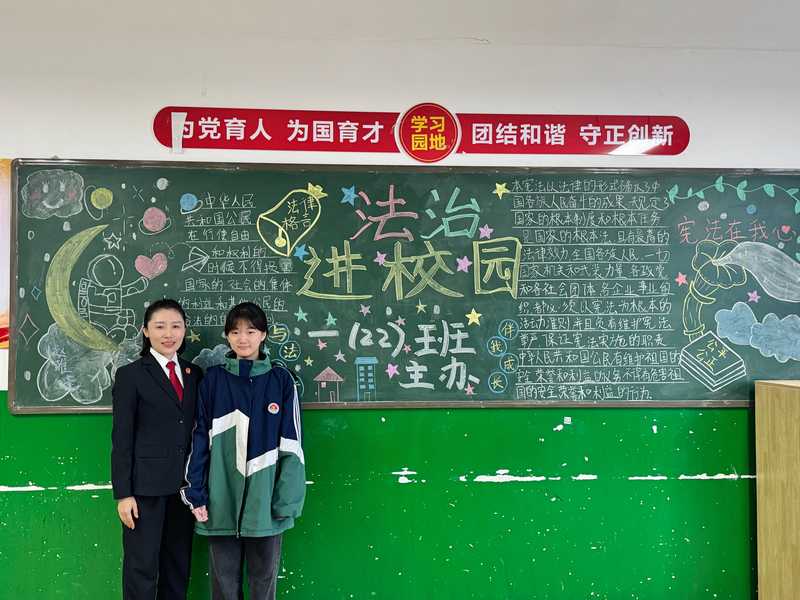 为党育人 为国育才
学习
园地
团结和谐 守正创新
中华人民
共和国公民
在行使自由
和权利的
时候不得损害
国家的 社会的 集体
法律
格言
法治
进校园
一(22)班
主办
与
法
伴
我
成
长
国各族人民奋斗的成果 规定了
国家的根本制度和根本任务
是国家的根本法 具有最高的
法律效力 全国各族人民 一切
国家机关和武装力量 各政党
和各社会团体 各企业事业组
织 都必须以宪法为根本的
活动准则 并且负有维护宪法
尊严 保证宪法实施的职责
中华人民共和国公民有维护祖国的
安全 荣誉和利益的义务 不得有危害祖
国的安全 荣誉和利益的行为
宪法在我心
公平
公正